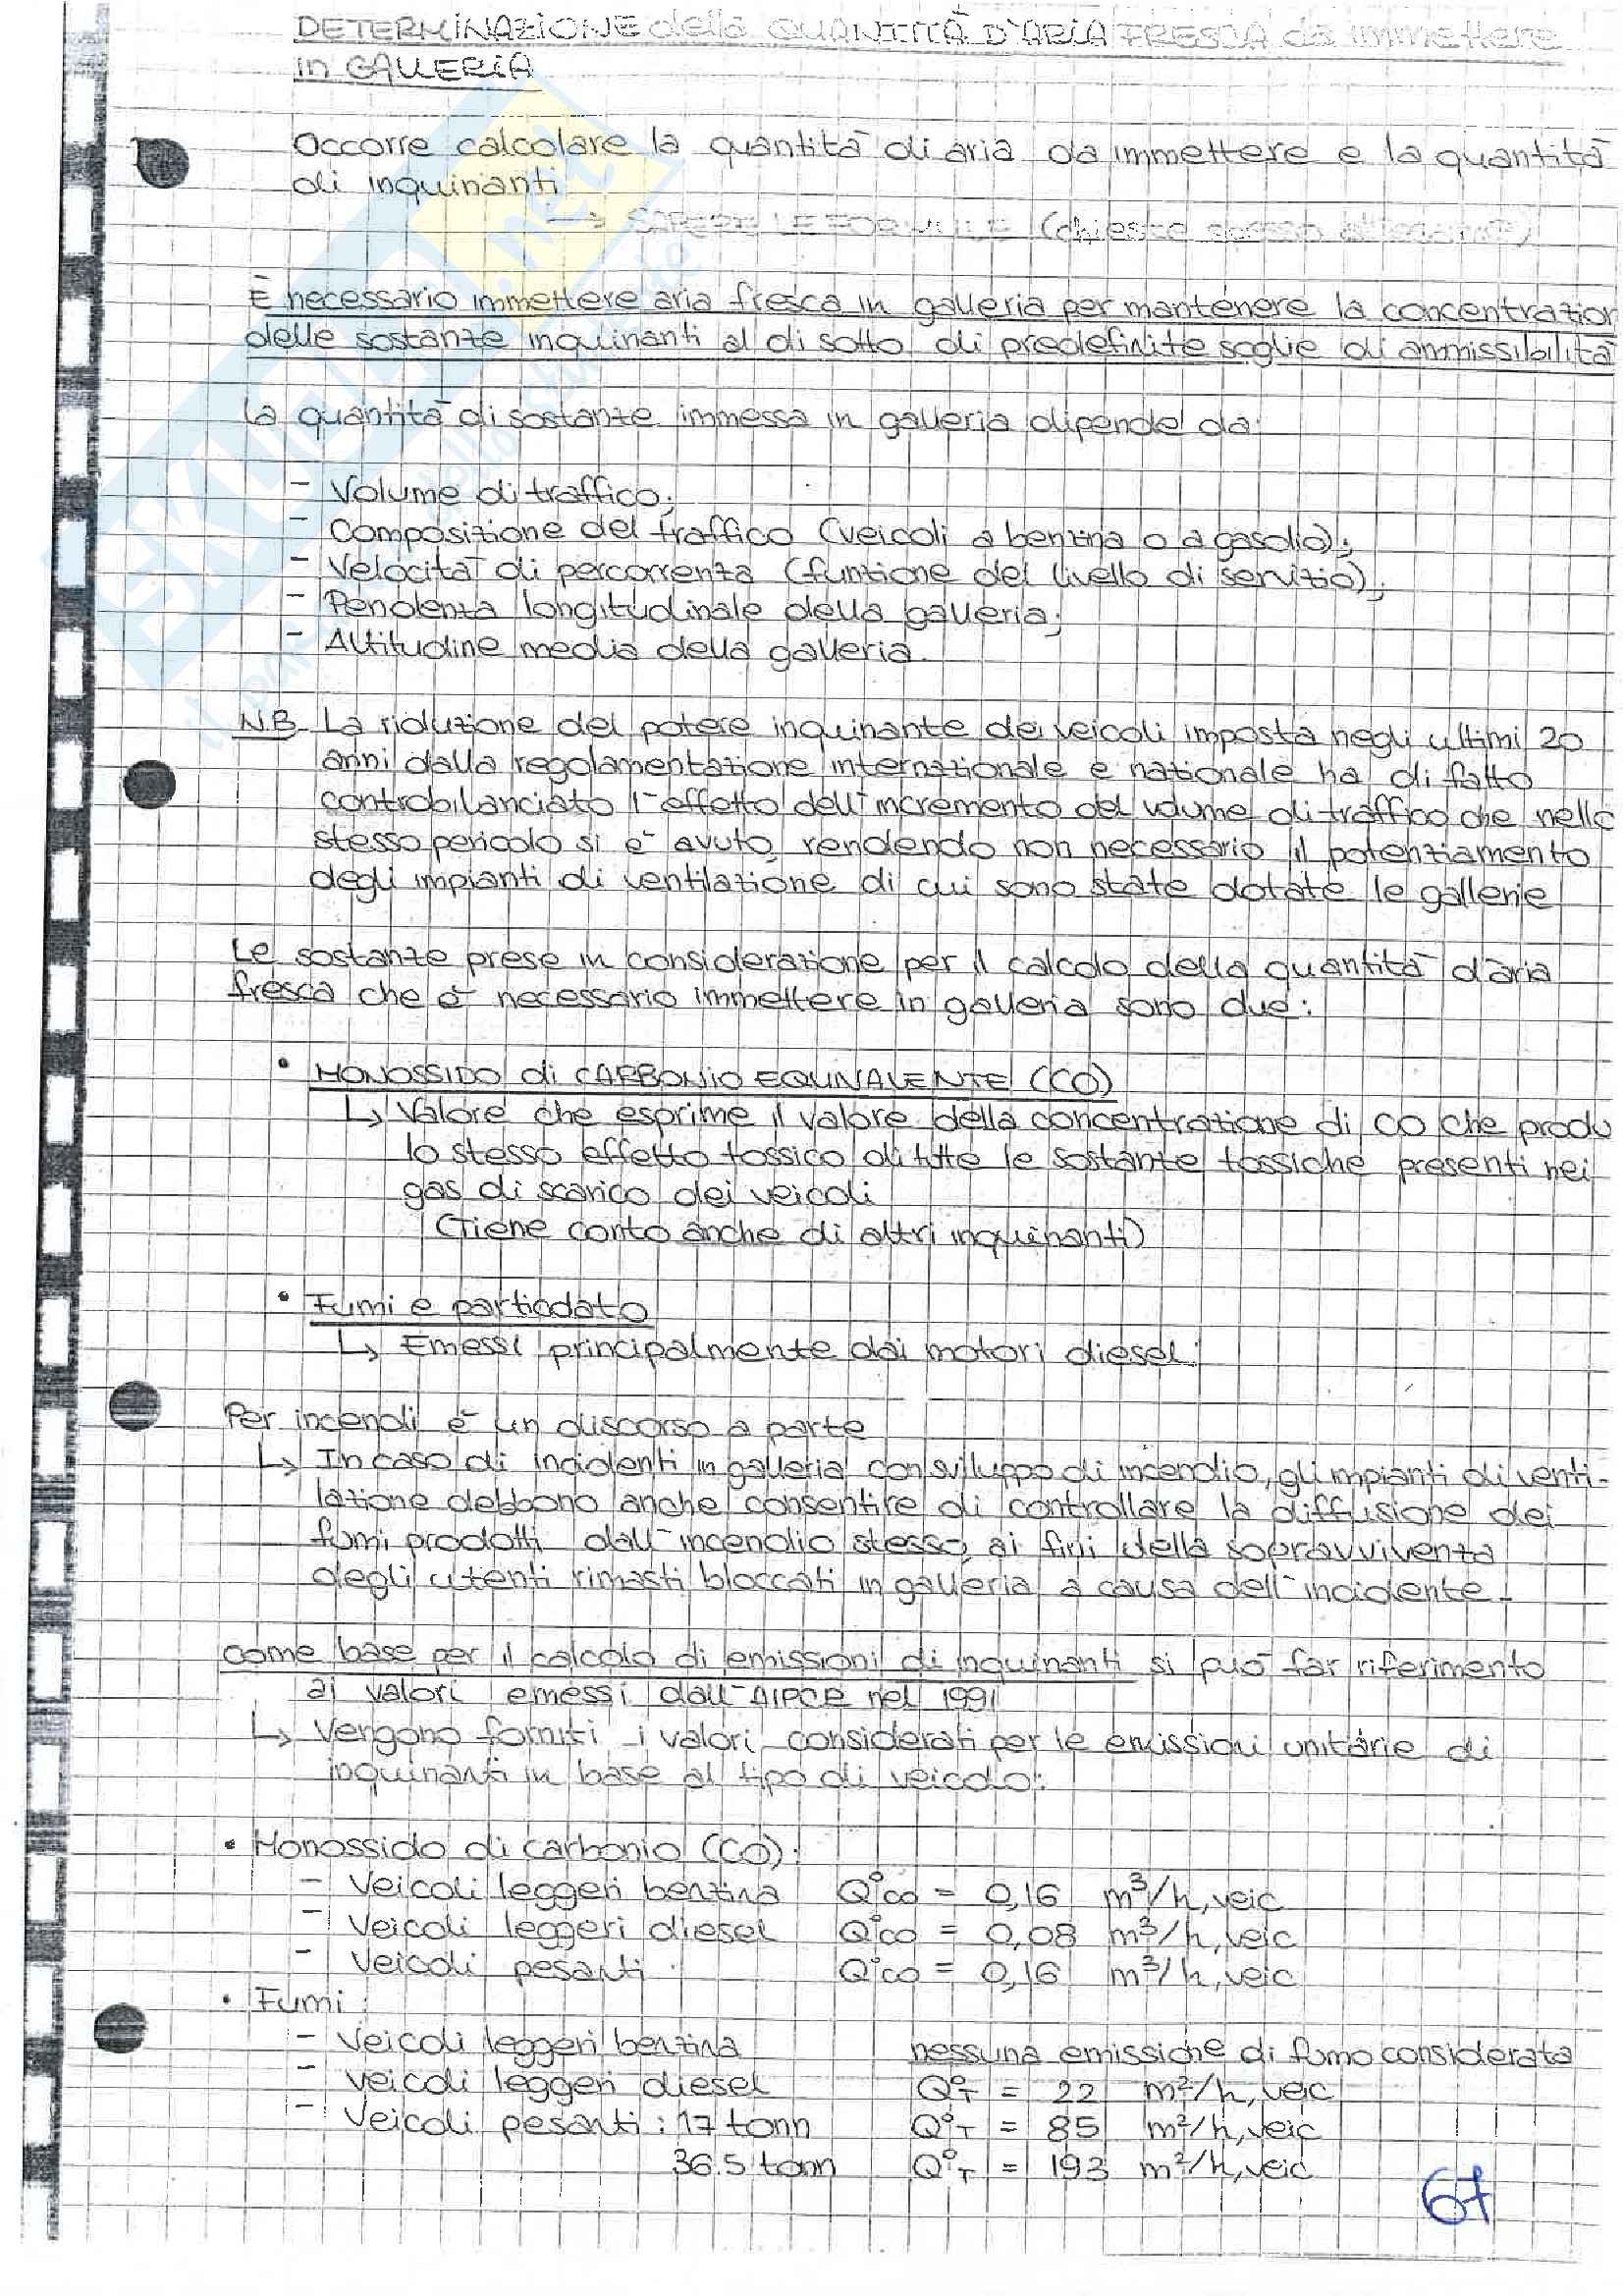 DETERMINAZIONE della QUANTITÀ D'ARIA FRESCA da immettere
in GALLERIA
Occorre calcolare la quantità di aria da immettere e la quantità
di inquinanti
→ SAPERE LE FORMULE (chieste spesso all'esame)
È necessario immettere aria fresca in galleria per mantenere la concentrazion
delle sostanze inquinanti al di sotto di predefinite soglie di ammissibilità
La quantità di sostanze immessa in galleria dipende da:
- Volume di traffico;
- Composizione del traffico (veicoli a benzina o a gasolio);
- Velocità di percorrenza (funzione del livello di servizio);
- Pendenza longitudinale della galleria;
- Altitudine media della galleria.
N.B. La riduzione del potere inquinante dei veicoli imposta negli ultimi 20
anni dalla regolamentazione internazionale e nazionale ha di fatto
controbilanciato l'effetto dell'incremento del volume di traffico che nello
stesso periodo si è avuto, rendendo non necessario il potenziamento
degli impianti di ventilazione di cui sono state dotate le gallerie
Le sostanze prese in considerazione per il calcolo della quantità d'aria
fresca che è necessario immettere in galleria sono due:
• MONOSSIDO di CARBONIO EQUIVALENTE (CO)
↳ Valore che esprime il valore della concentrazione di CO che produ
lo stesso effetto tossico di tutte le sostanze tossiche presenti nei
gas di scarico dei veicoli
(Tiene conto anche di altri inquinanti)
• Fumi e particolato
↳ Emessi principalmente dai motori diesel.
Per incendi è un discorso a parte
↳ In caso di incidenti in galleria con sviluppo di incendio, gli impianti di venti-
lazione debbono anche consentire di controllare la diffusione dei
fumi prodotti dall'incendio stesso, ai fini della sopravvivenza
degli utenti rimasti bloccati in galleria a causa dell'incidente.
Come base per il calcolo di emissioni di inquinanti si può far riferimento
ai valori emessi dall'AIPCR nel 1991
↳ Vengono forniti i valori considerati per le emissioni unitarie di
inquinanti in base al tipo di veicolo:
• Monossido di carbonio (CO):
- Veicoli leggeri benzina Q°co = 0,16 m³/h, veic
- Veicoli leggeri diesel Q°co = 0,08 m³/h, veic
- Veicoli pesanti Q°co = 0,16 m³/h, veic
• Fumi:
- Veicoli leggeri benzina nessuna emissione di fumo considerata
- Veicoli leggeri diesel Q°T = 22 m²/h, veic
- Veicoli pesanti: 17 tonn Q°T = 85 m²/h, veic
36.5 tonn Q°T = 193 m²/h, veic
67